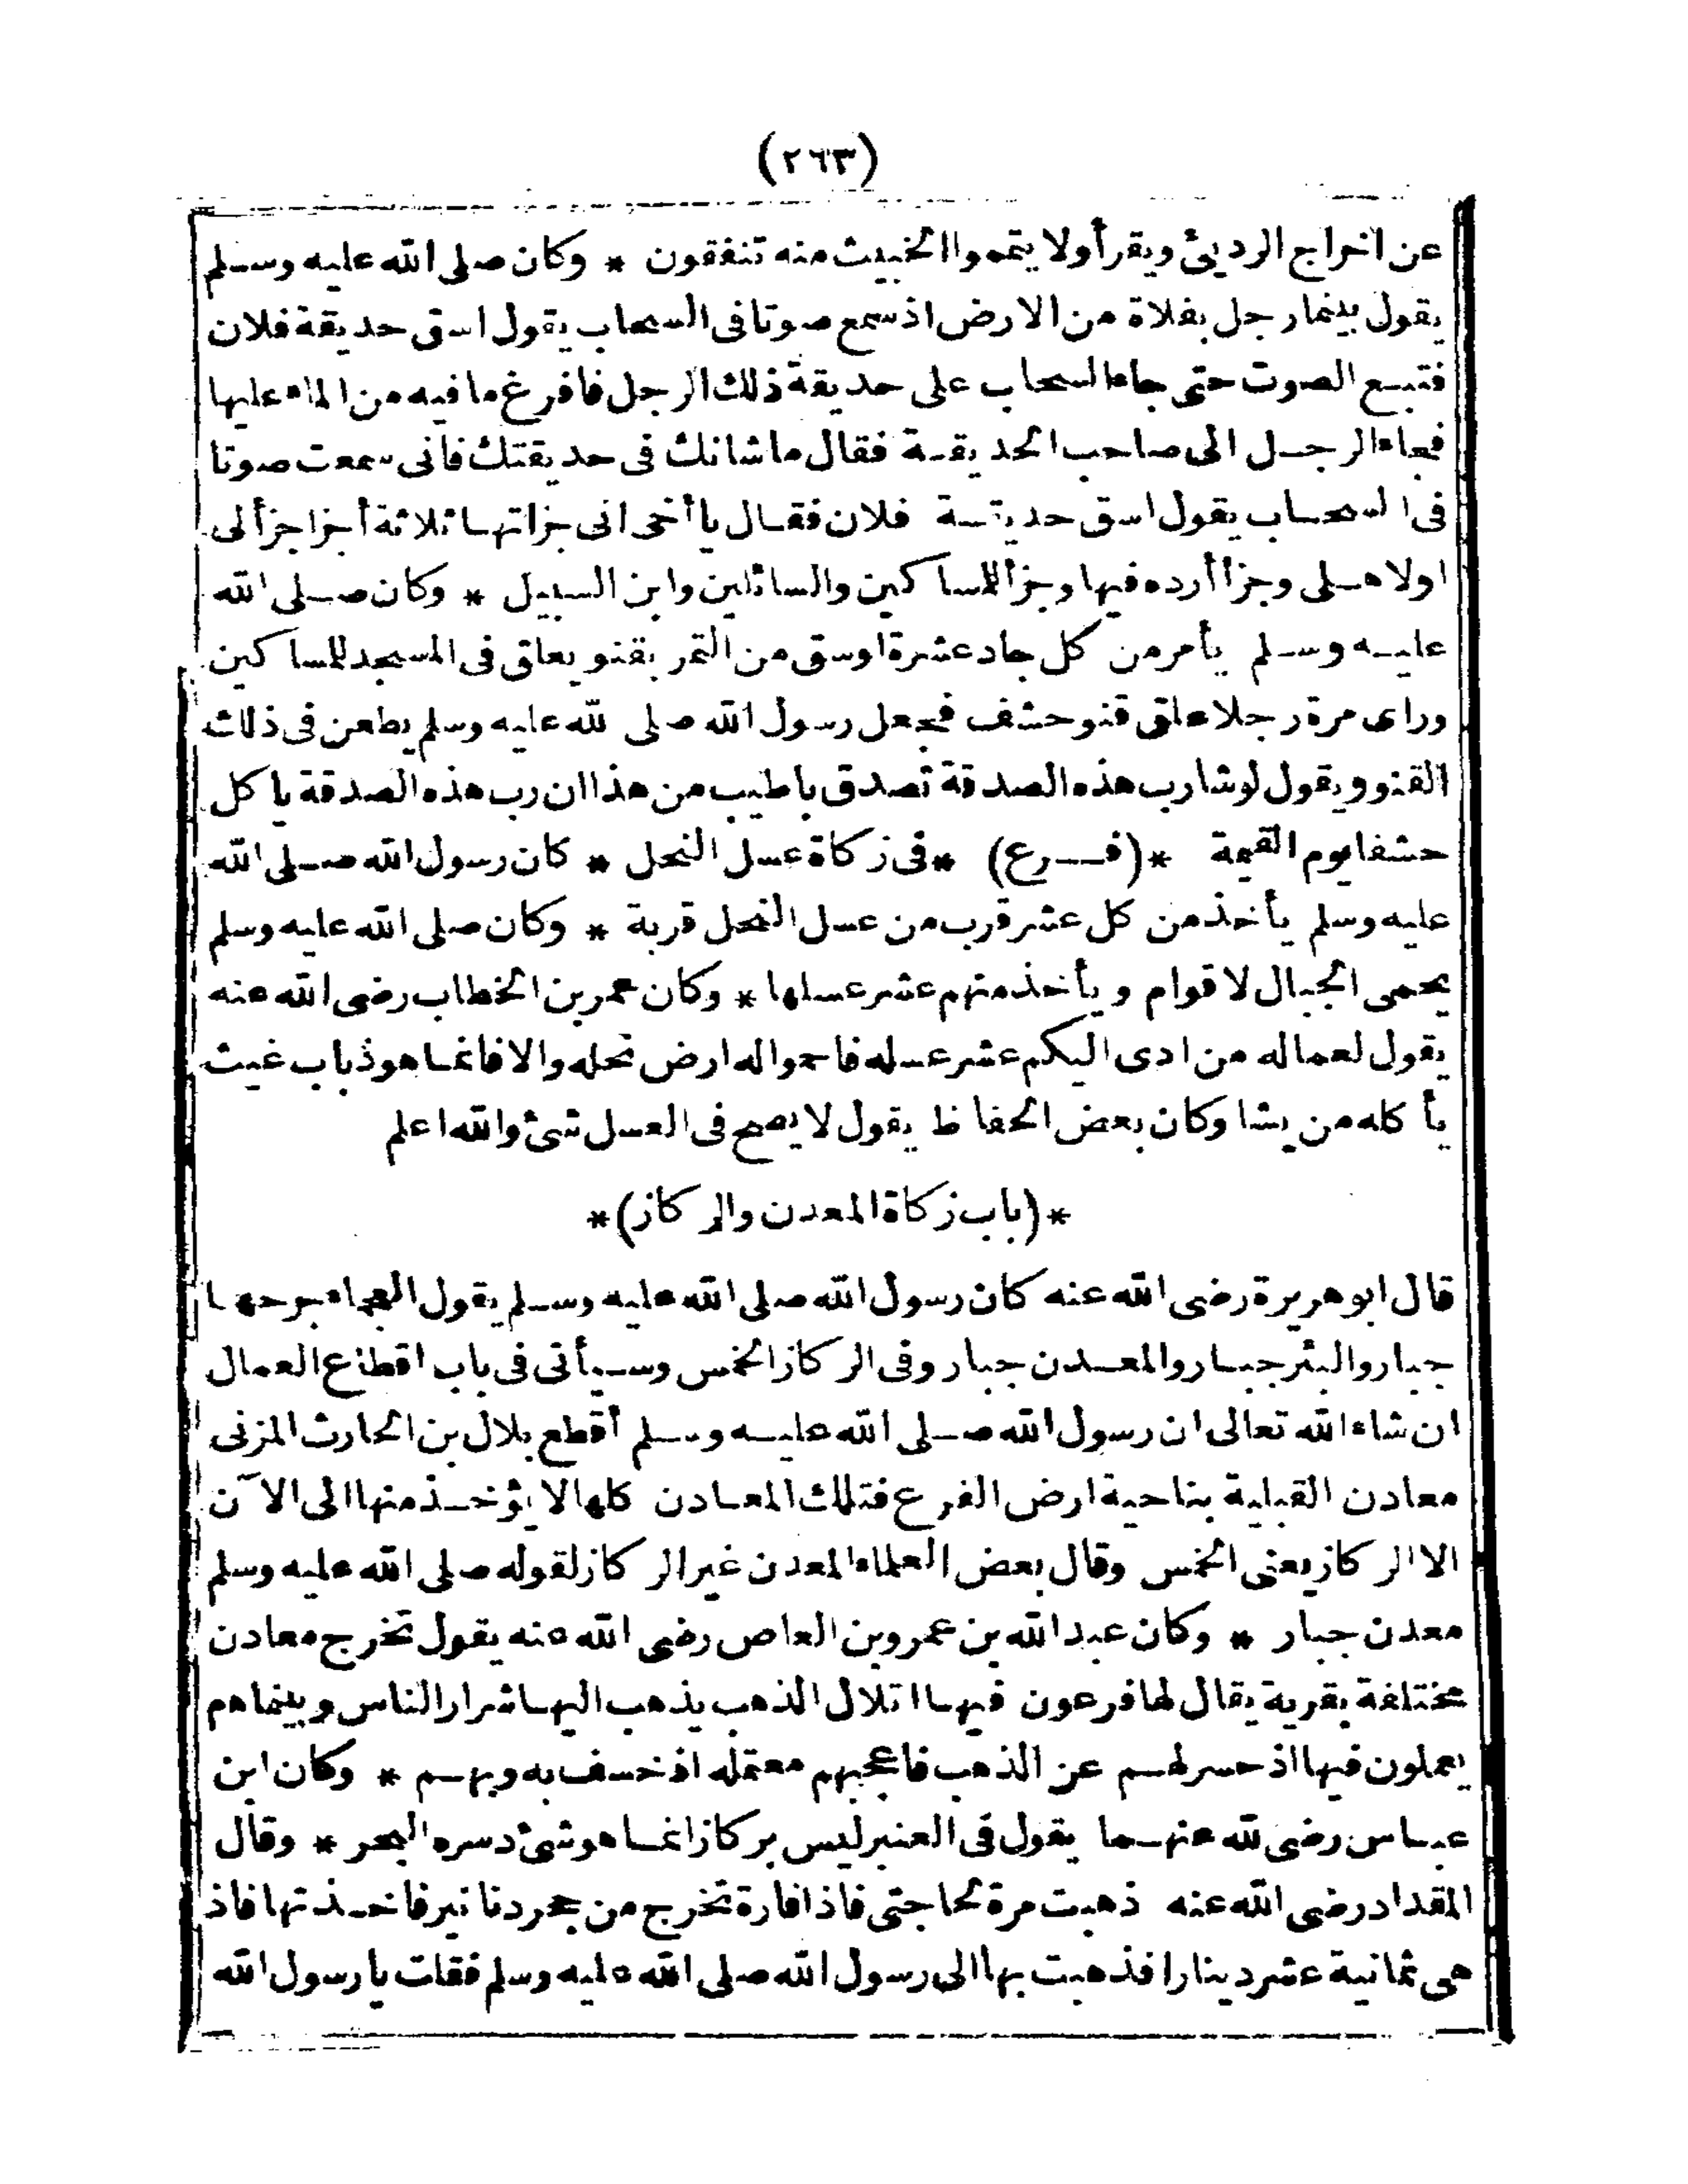 (٢٦٣)
عن اخراج الرديئ ويقرأ ولا يتمموا الخبيث منه تنفقون * وكان صلى الله عليه وسلم
يقول بينما رجل بفلاة من الارض اذ سمع صوتا فى السحاب يقول اسق حديقة فلان
فتبع الصوت حتى جاء السحاب على حديقة ذلك الرجل فافرغ ما فيه من الماء عليها
فجاء الرجل الى صاحب الحديقة فقال ما شانك فى حديقتك فانى سمعت صوتا
فى السحاب يقول اسق حديقة فلان فقال يا أخى انى جزاتها ثلاثة أجزا جزألى
اولاهلى وجزأ أرده فيها وجزأ للمساكين والسائلين وابن السبيل * وكان صلى الله
عليه وسلم يأمر من كل جاد عشرة اوسق من التمر بقنو يعلق فى المسجد للمساكين
وراى مرة رجلا علق قنو حشف فجعل رسول الله صلى لله عليه وسلم يطعن فى ذلك
القنو ويقول لو شا رب هذه الصدقة تصدق باطيب من هذا ان رب هذه الصدقة ياكل
حشفا يوم القيمة *(فرع) *فى زكاة عسل النحل * كان رسول الله صلى الله
عليه وسلم يأخذ من كل عشر قرب من عسل النحل قربة * وكان صلى الله عليه وسلم
يحمى الجبال لاقوام ويأخذ منهم عشر عسلها * وكان عمر بن الخطاب رضى الله عنه
يقول لعماله من ادى اليكم عشر عسله فاحموا له ارض نحله والا فانما هو ذباب غيث
يأكله من يشا وكان بعض الحفاظ يقول لا يصح فى العسل شئ والله اعلم
*(باب زكاة المعدن والركاز)*
قال ابو هريرة رضى الله عنه كان رسول الله صلى الله عليه وسلم يقول العجماء جرحها
جبار والبئر جبار والمعدن جبار وفى الركاز الخمس وسيأتى فى باب اقطاع العمال
ان شاء الله تعالى ان رسول الله صلى الله عليه وسلم أقطع بلال بن الحارث المزنى
معادن القبلية بناحية ارض الفرع فتلك المعادن كلها لا يؤخذ منها الى الآن
الا الركاز يعنى الخمس وقال بعض العلماء المعدن غير الركاز لقوله صلى الله عليه وسلم
معدن جبار * وكان عبد الله بن عمرو بن العاص رضى الله عنه يقول تخرج معادن
مختلفة بقرية يقال لها فرعون فيها اتلال الذهب يذهب اليها شرار الناس وبينما هم
يعملون فيها اذ حسر لهم عن الذهب فاعجبهم معتمله اذ خسف به وبهم * وكان ابن
عباس رضى لله عنهما يقول فى العنبر ليس بركاز انما هو شئ دسره البحر * وقال
المقداد رضى الله عنه ذهبت مرة لحاجتى فاذا فارة تخرج من جحر دنانير فاخذتها فاذ
هى ثمانية عشر دينارا فذهبت بها الى رسول الله صلى الله عليه وسلم فقلت يا رسول الله